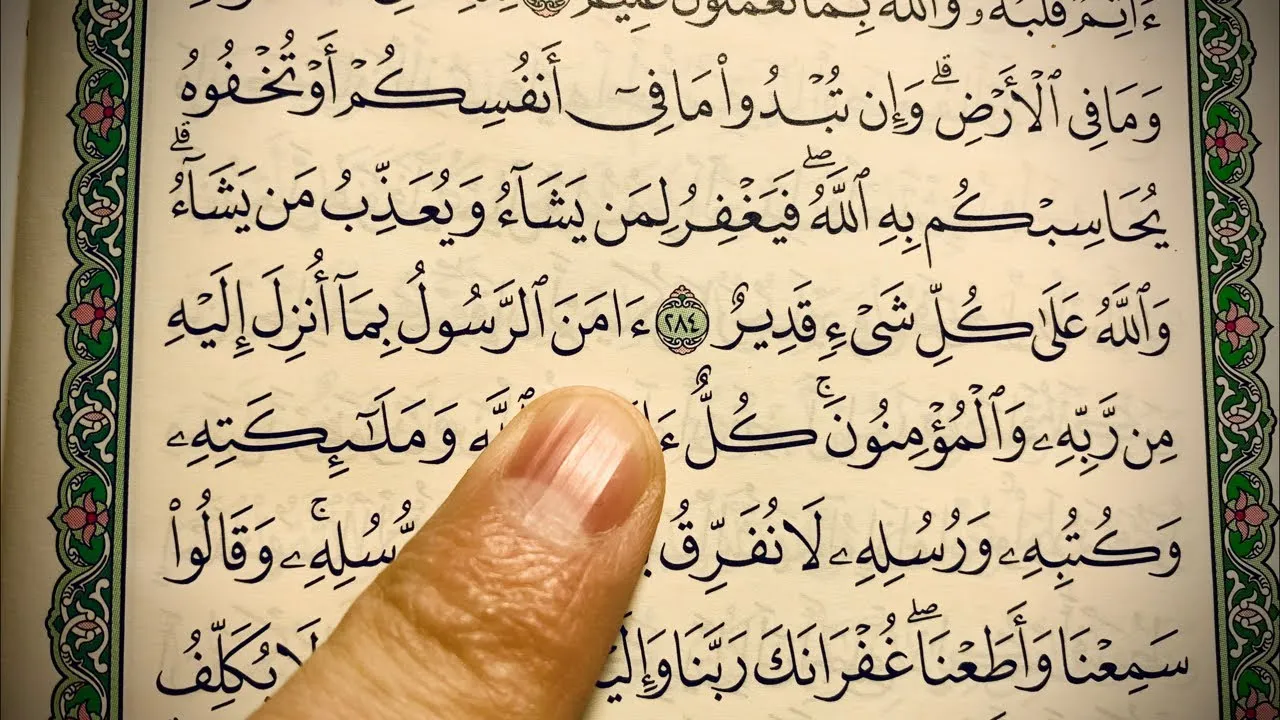 ءَاثِمٌ قَلْبُهُۥ وَٱللَّهُ بِمَا تَعْمَلُونَ عَلِيمٌ
وَمَا فِى ٱلْأَرْضِ ۗ وَإِن تُبْدُوا۟ مَا فِىٓ أَنفُسِكُمْ أَوْ تُخْفُوهُ
يُحَاسِبْكُم بِهِ ٱللَّهُ ۖ فَيَغْفِرُ لِمَن يَشَآءُ وَيُعَذِّبُ مَن يَشَآءُ ۗ
وَٱللَّهُ عَلَىٰ كُلِّ شَىْءٍ قَدِيرٌ ٢٨٤ ءَامَنَ ٱلرَّسُولُ بِمَآ أُنزِلَ إِلَيْهِ
مِن رَّبِّهِۦ وَٱلْمُؤْمِنُونَ ۚ كُلٌّ وَمَلَٰٓئِكَتِهِۦ
وَكُتُبِهِۦ وَرُسُلِهِۦ لَا نُفَرِّقُ رُّسُلِهِۦ ۚ وَقَالُوا۟
سَمِعْنَا وَأَطَعْنَا ۖ غُفْرَانَكَ رَبَّنَا لَا يُكَلِّفُ